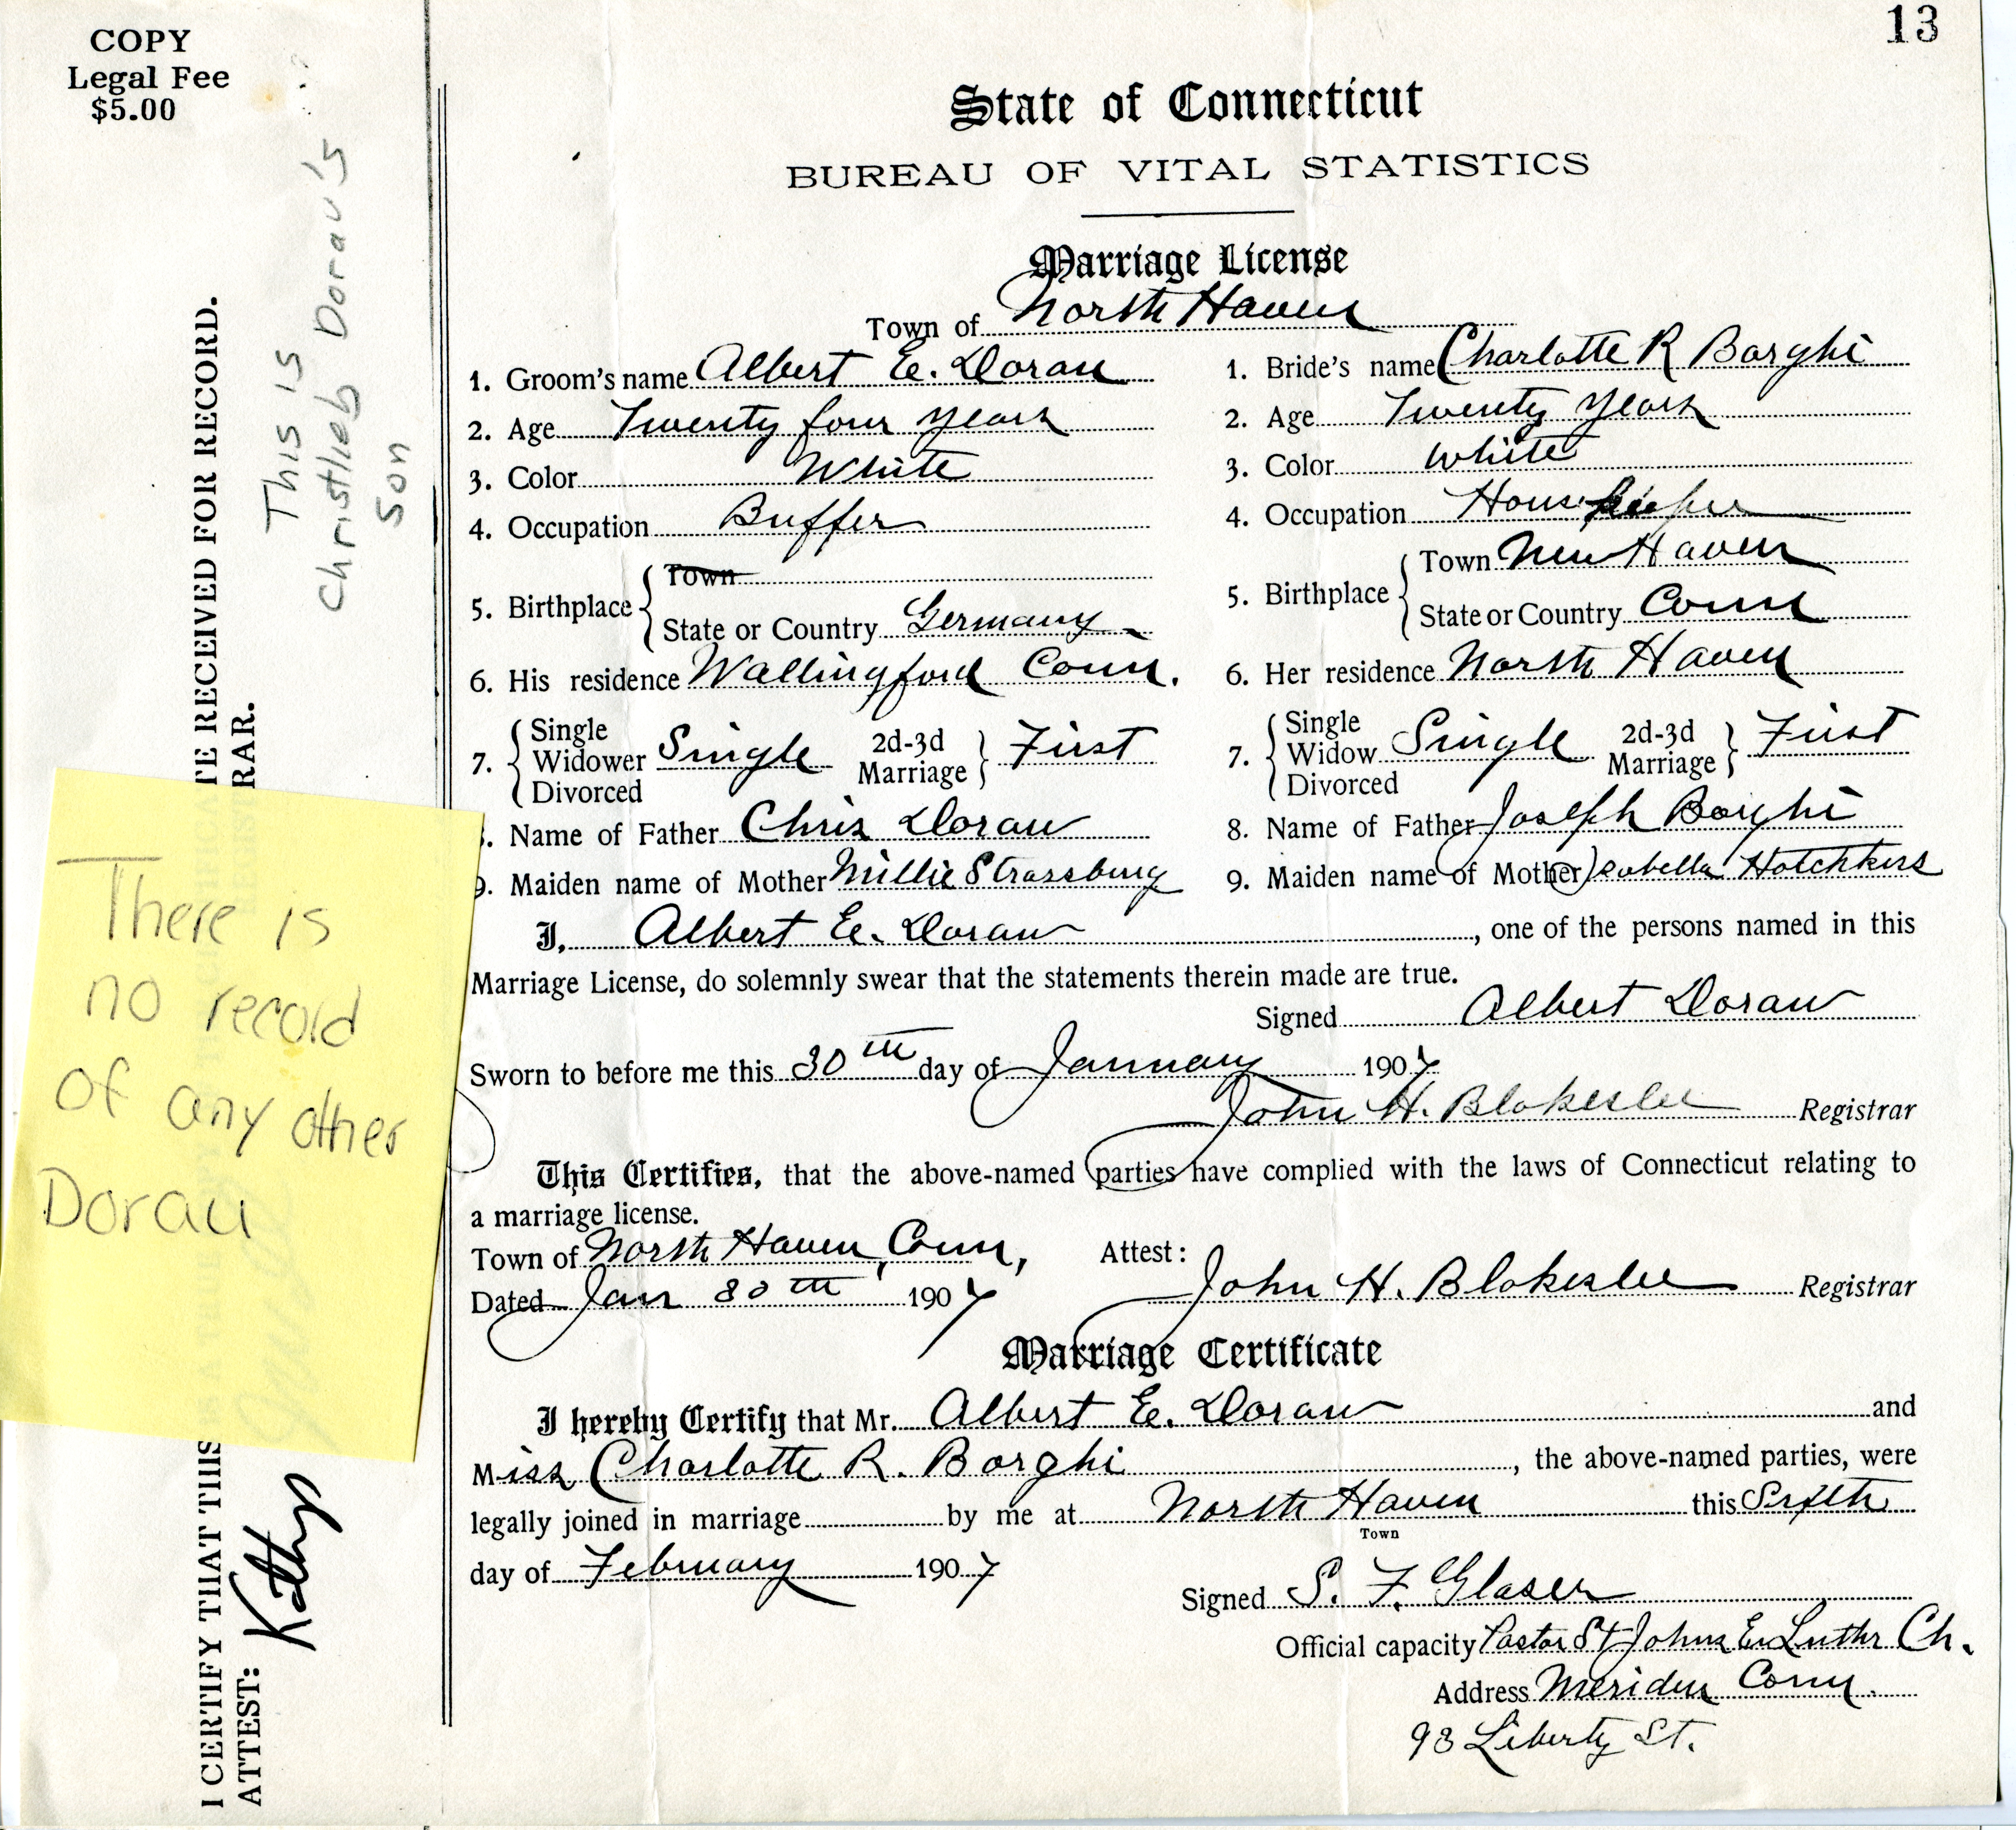 13
COPY
Legal Fee
$5.00
This is
Christlieb Dorau's
Son
I CERTIFY THAT THIS IS A TRUE COPY CERTIFICATE RECEIVED FOR RECORD.
ATTEST: Kathy REGISTRAR.
There is
no record
of any other
Dorau
State of Connecticut
BUREAU OF VITAL STATISTICS
Marriage License
Town of North Haven
1. Groom's name Albert E. Dorau
2. Age Twenty four years
3. Color White
4. Occupation Buffer
5. Birthplace Town
State or Country Germany
6. His residence Wallingford Conn.
7. Single Widower Divorced Single 2d-3d Marriage First
8. Name of Father Chris Dorau
9. Maiden name of Mother Millie Strassburg
1. Bride's name Charlotte R Borghi
2. Age Twenty Years
3. Color White
4. Occupation Housekeeper
5. Birthplace Town New Haven
State or Country Conn
6. Her residence North Haven
7. Single Widow Divorced Single 2d-3d Marriage First
8. Name of Father Joseph Borghi
9. Maiden name of Mother Isabella Hotchkiss
I, Albert E. Dorau, one of the persons named in this
Marriage License, do solemnly swear that the statements therein made are true.
Signed Albert Dorau
Sworn to before me this 30th day of January 1907
John H. Blakeslee Registrar
This Certifies, that the above-named parties have complied with the laws of Connecticut relating to
a marriage license.
Town of North Haven, Conn, Attest:
Dated Jan 30th 1907 John H. Blakeslee Registrar
Marriage Certificate
I hereby Certify that Mr. Albert E. Dorau and
Miss Charlotte R. Borghi, the above-named parties, were
legally joined in marriage by me at North Haven this Sixth
Town
day of February 1907
Signed S. F. Glaser
Official capacity Pastor St Johns Ev Luthr Ch.
Address Meriden Conn.
93 Liberty St.